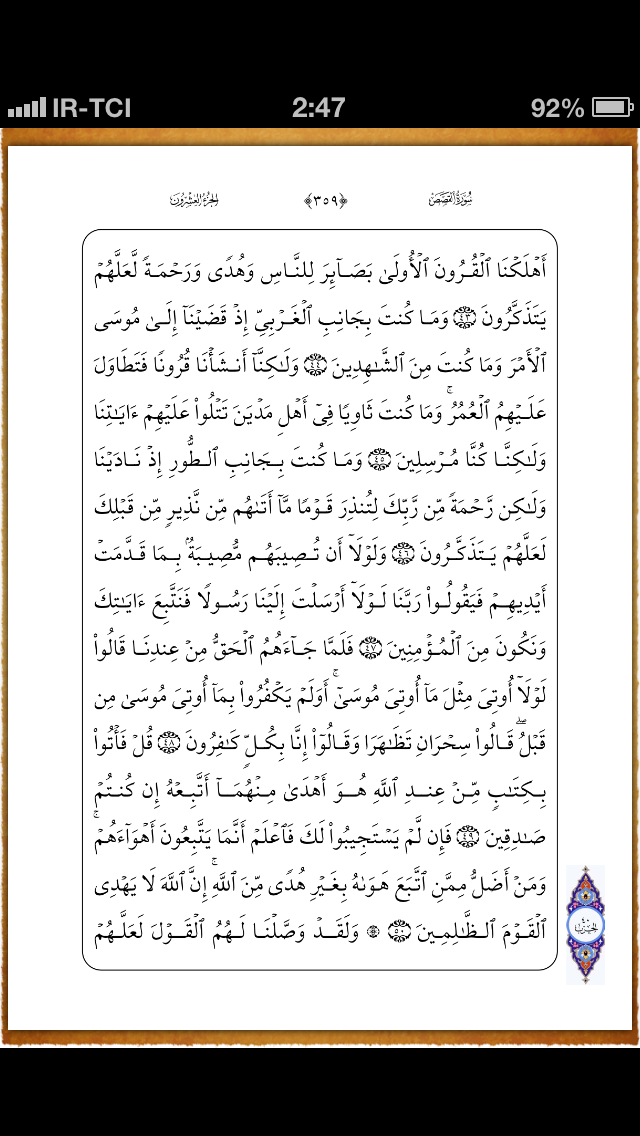 IR-TCI 2:47 92%
سُورَةُ القَصَصِ ﴿٣٥٩﴾ الجُزْءُ العِشْرُونَ
أَهْلَكْنَا ٱلْقُرُونَ ٱلْأُولَىٰ بَصَآئِرَ لِلنَّاسِ وَهُدًى وَرَحْمَةً لَّعَلَّهُمْ
يَتَذَكَّرُونَ ٤٣ وَمَا كُنتَ بِجَانِبِ ٱلْغَرْبِىِّ إِذْ قَضَيْنَآ إِلَىٰ مُوسَى
ٱلْأَمْرَ وَمَا كُنتَ مِنَ ٱلشَّٰهِدِينَ ٤٤ وَلَٰكِنَّآ أَنشَأْنَا قُرُونًا فَتَطَاوَلَ
عَلَيْهِمُ ٱلْعُمُرُ ۚ وَمَا كُنتَ ثَاوِيًا فِىٓ أَهْلِ مَدْيَنَ تَتْلُوا۟ عَلَيْهِمْ ءَايَٰتِنَا
وَلَٰكِنَّا كُنَّا مُرْسِلِينَ ٤٥ وَمَا كُنتَ بِجَانِبِ ٱلطُّورِ إِذْ نَادَيْنَا
وَلَٰكِن رَّحْمَةً مِّن رَّبِّكَ لِتُنذِرَ قَوْمًا مَّآ أَتَىٰهُم مِّن نَّذِيرٍ مِّن قَبْلِكَ
لَعَلَّهُمْ يَتَذَكَّرُونَ ٤٦ وَلَوْلَآ أَن تُصِيبَهُم مُّصِيبَةٌۢ بِمَا قَدَّمَتْ
أَيْدِيهِمْ فَيَقُولُوا۟ رَبَّنَا لَوْلَآ أَرْسَلْتَ إِلَيْنَا رَسُولًا فَنَتَّبِعَ ءَايَٰتِكَ
وَنَكُونَ مِنَ ٱلْمُؤْمِنِينَ ٤٧ فَلَمَّا جَآءَهُمُ ٱلْحَقُّ مِنْ عِندِنَا قَالُوا۟
لَوْلَآ أُوتِىَ مِثْلَ مَآ أُوتِىَ مُوسَىٰٓ ۚ أَوَلَمْ يَكْفُرُوا۟ بِمَآ أُوتِىَ مُوسَىٰ مِن
قَبْلُ ۖ قَالُوا۟ سِحْرَانِ تَظَٰهَرَا وَقَالُوٓا۟ إِنَّا بِكُلٍّ كَٰفِرُونَ ٤٨ قُلْ فَأْتُوا۟
بِكِتَٰبٍ مِّنْ عِندِ ٱللَّهِ هُوَ أَهْدَىٰ مِنْهُمَآ أَتَّبِعْهُ إِن كُنتُمْ
صَٰدِقِينَ ٤٩ فَإِن لَّمْ يَسْتَجِيبُوا۟ لَكَ فَٱعْلَمْ أَنَّمَا يَتَّبِعُونَ أَهْوَآءَهُمْ ۚ
وَمَنْ أَضَلُّ مِمَّنِ ٱتَّبَعَ هَوَىٰهُ بِغَيْرِ هُدًى مِّنَ ٱللَّهِ ۚ إِنَّ ٱللَّهَ لَا يَهْدِى
ٱلْقَوْمَ ٱلظَّٰلِمِينَ ٥٠ ۞ وَلَقَدْ وَصَّلْنَا لَهُمُ ٱلْقَوْلَ لَعَلَّهُمْ